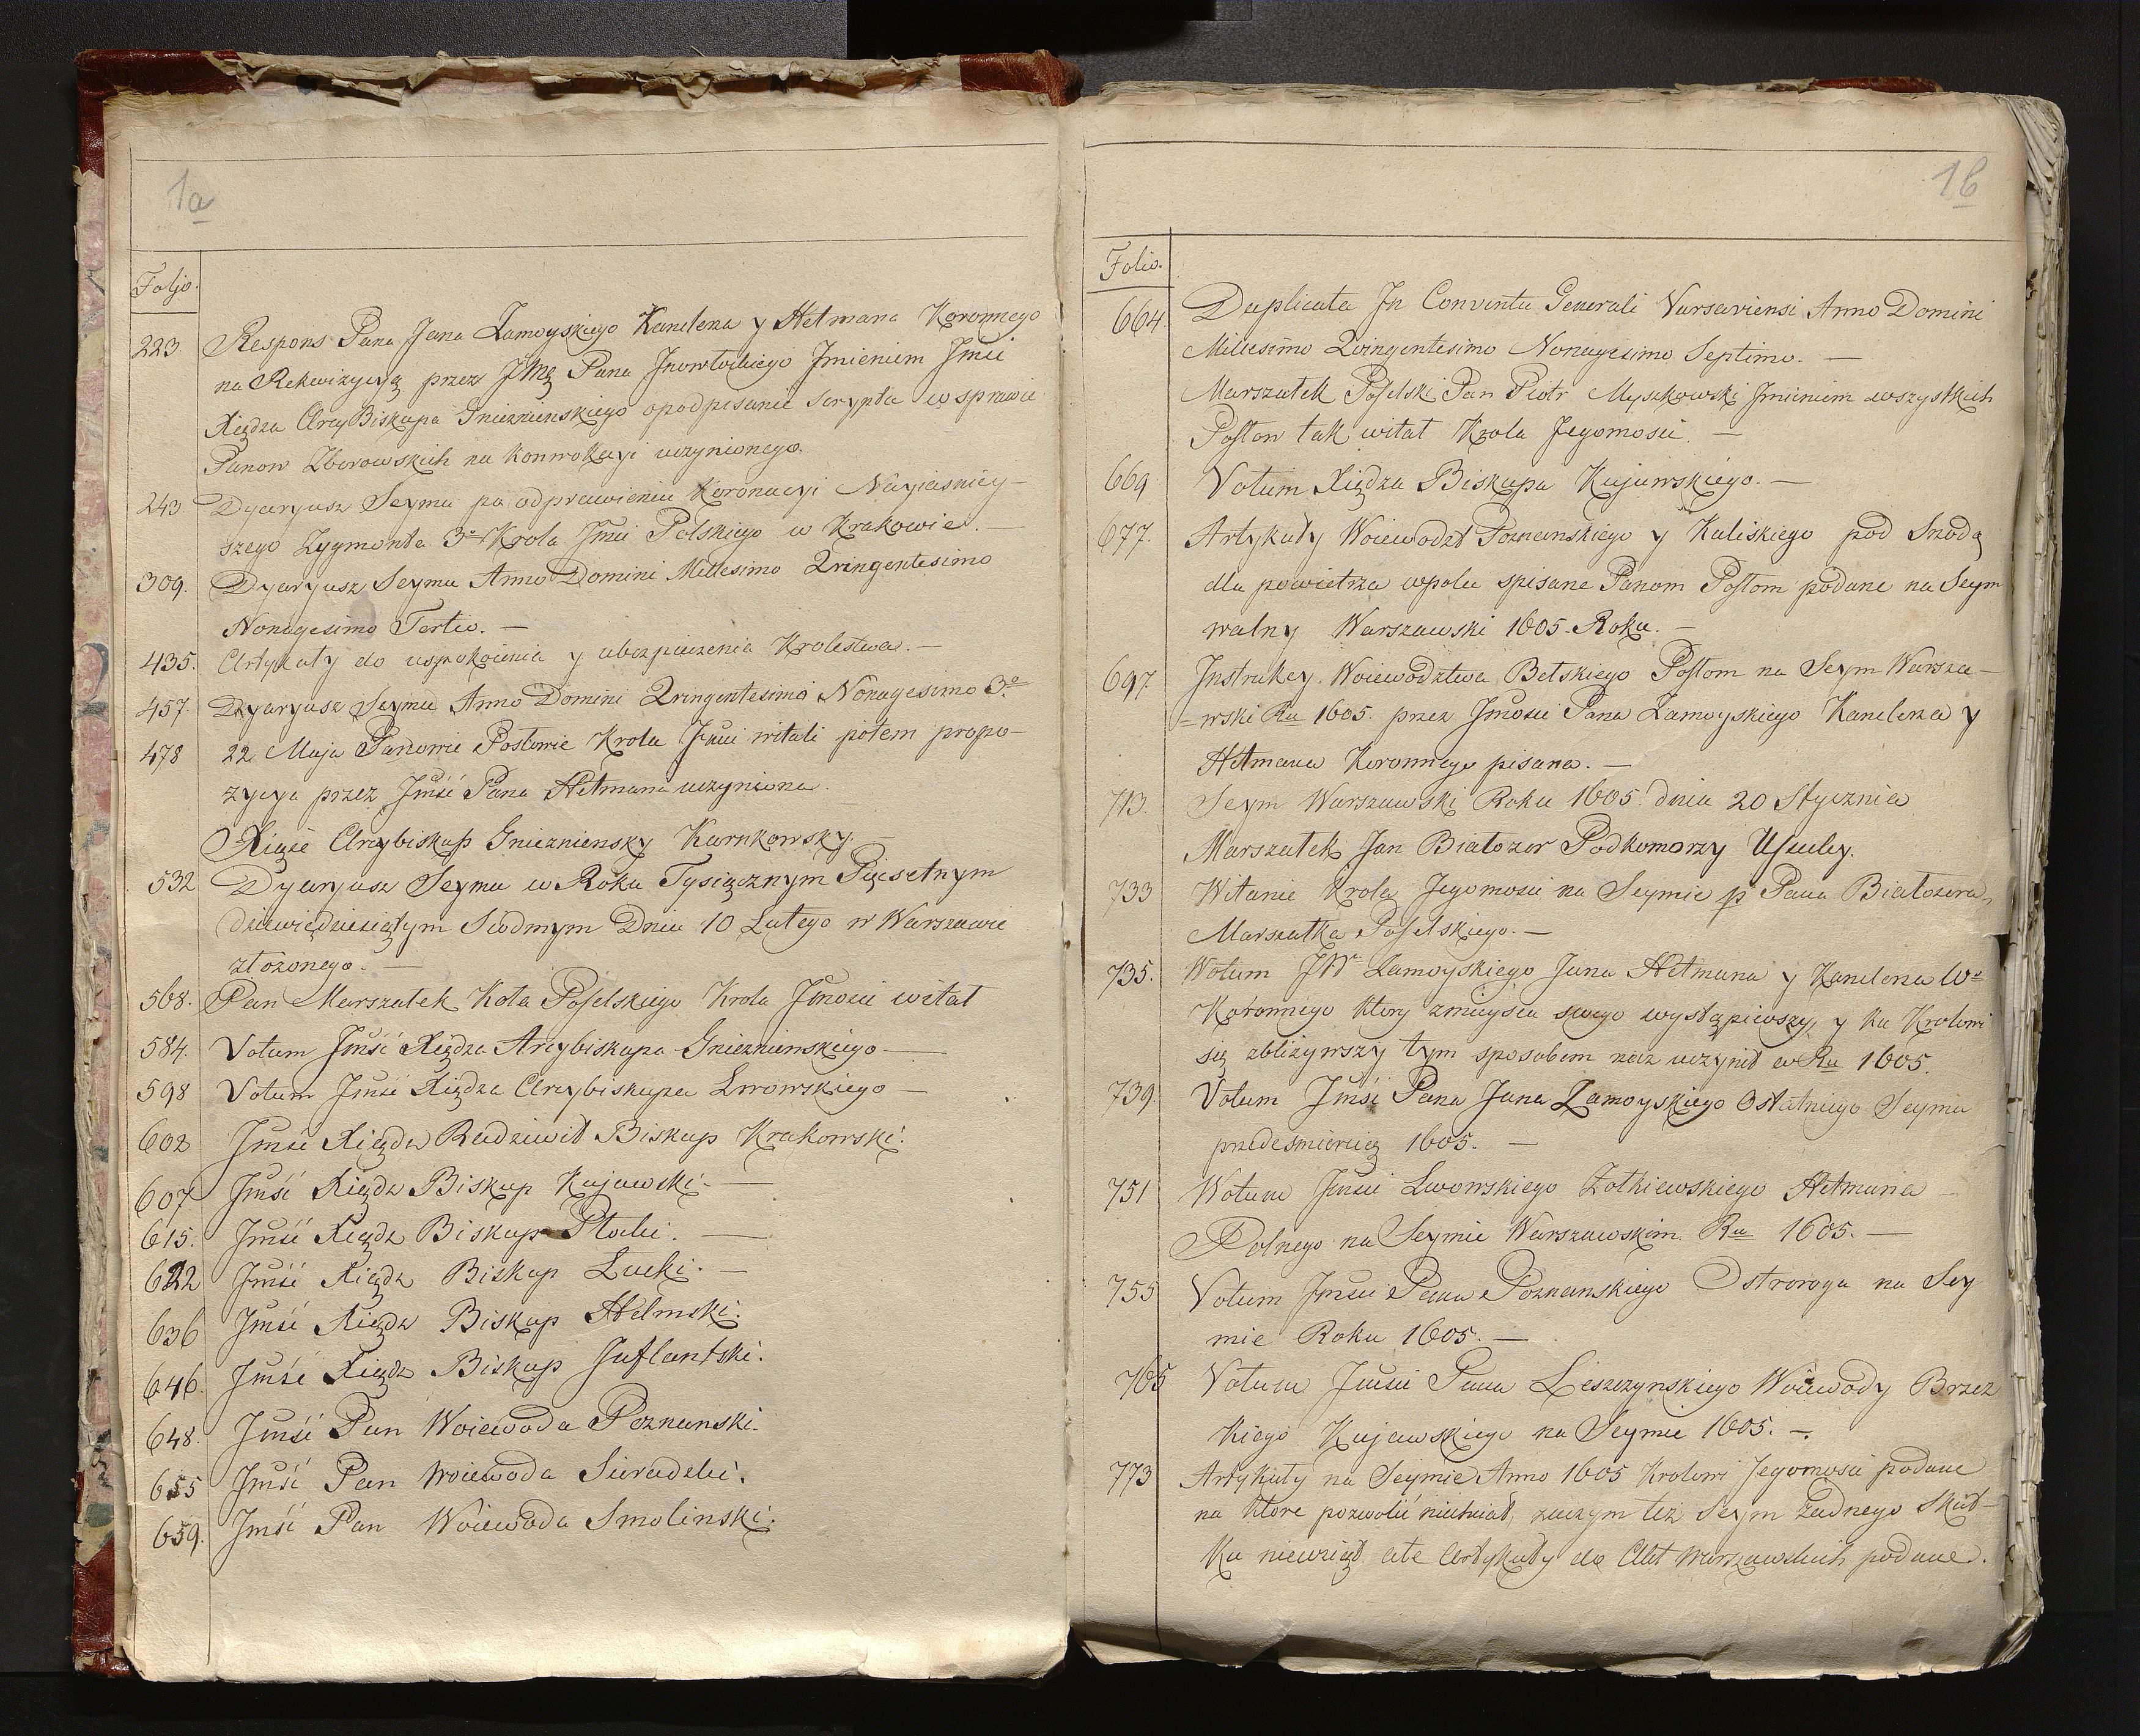 1a
Foljo.
223 Respons Pana Jana Zamoyskiego Kanclerza y Hetmana Koronnego
na Rekwizycyą przez JMę Pana Jnowłockiego Jmieniem Jmci
Xiędza ArcyBiskupa Gnieznienskiego opodpisanie Scrypta w sprawie
Panow Zborowskich na konwokacyi uczynionego.
243 Dyaryusz Seymu po odprawieniu Koronacyi Nayiasniey-
szego Zygmonta 3o Krola Jmci Polskiego w Krakowie. —
309. Dyaryusz Seymu Anno Domini Millesimo Qvingentesimo
Nonagesimo Tertio. —
435. Artykuły do uspokoienia y ubezpieczenia Krolestwa. —
457. Dyaryusz Seymu Anno Domini Qvingentesimo Nonagesimo 3o
478 22 Maja Panowie Posłowie Krola Jmci witali potem propo-
zycya przez Jmść Pana Hetmana uczyniona.
Xiąże Arcybiskup Gniezniensky Karnkowsky. —
532 Dyaryusz Seymu w Roku Tysiącznym Pięcsetnym
dziewiędziesiątym Siodmym Dnia 10 Lutego w Warszawie
złożonego. —
568. Pan Marszałek Koła Poselskiego Krola Jmości witał
584. Votum Jmść Xiędza Arcybiskupa Gnieznienskiego —
598 Votum Jmść Xiędza Arcybiskupa Lwowskiego —
602 Jmść Xiądz Radziwił Biskup Krakowski.
607 Jmść Xiądz Biskup Kujawski. —
615. Jmść Xiądz Biskup Płocki. —
622 Jmść Xiądz Biskup Łucki. —
636 Jmść Xiądz Biskup Hełmski.
646. Jmść Xiądz Biskup Juflantski.
648. Jmść Pan Woiewoda Poznanski.
655 Jmść Pan Woiewoda Sieradzki.
659. Jmść Pan Woiewoda Smolinski.
1b
Folio.
664. Duplicata Jn Conventu Generali Varsaviensi Anno Domini
Millesimo Qvingentesimo Nonagesimo Septimo. —
Marszałek Poselski Pan Piotr Myszkowski Jmieniem wszystkich
Posłow tak witał Krola Jegomości. —
669 Votum Xiędza Biskupa Kujawskiego. —
677. Artykuły Woiewodzt Poznanskiego y Kaliskiego pod Srzodą
dla powietrza wpolu spisane Panom Posłom podane na Seym
walny Warszawski 1605. Roku. —
697 Jnstrukcy. Woiewodztwa Bełskiego Posłom na Seym Warsza-
-wski Ru 1605. przez Jmości Pana Zamoyskiego Kanclerza y
Hetmana Koronnego pisana. —
713. Seym Warszawski Roku 1605. dnia 20 Stycznia
Marszałek Jan Białozor Podkomorzy Upicky.
733 Witanie Krola Jegomości na Seymie p Pana Białozora
Marszałka Poselskiego. —
735. Wotum JW Zamoyskiego Jana Hetmana y Kanclerza Wo
Koronnego ktory zmieysca swego wystąpiwszy, y ku Krolowi
się zbliżywszy tym sposobem rzcz uczynił w Ru 1605.
739. Votum Jmści Pana Jana Zamoyskiego Ostatniego Seymu
przedesmiercią 1605. —
751 Wotum Jmści Lwowskiego Żołkiewskiego Hetmana —
Polnego na Seymie Warszawskim Ru 1605. —
755 Votum Jmści Pana Poznanskiego Ostroroga na Sey
mie Roku 1605. —
765 Votum Jmści Pana Leszczynskiego Woiewody Brzez
kiego Kujawskiego na Seymie 1605. —.
773 Artykuły na Seymie Anno 1605 Krolowi Jegomości podane
na ktore pozwolić niechciał, zaczym też Seym żadnego Skut-
ku niewziął ale Artykuły do Akt Warszawskich podane.